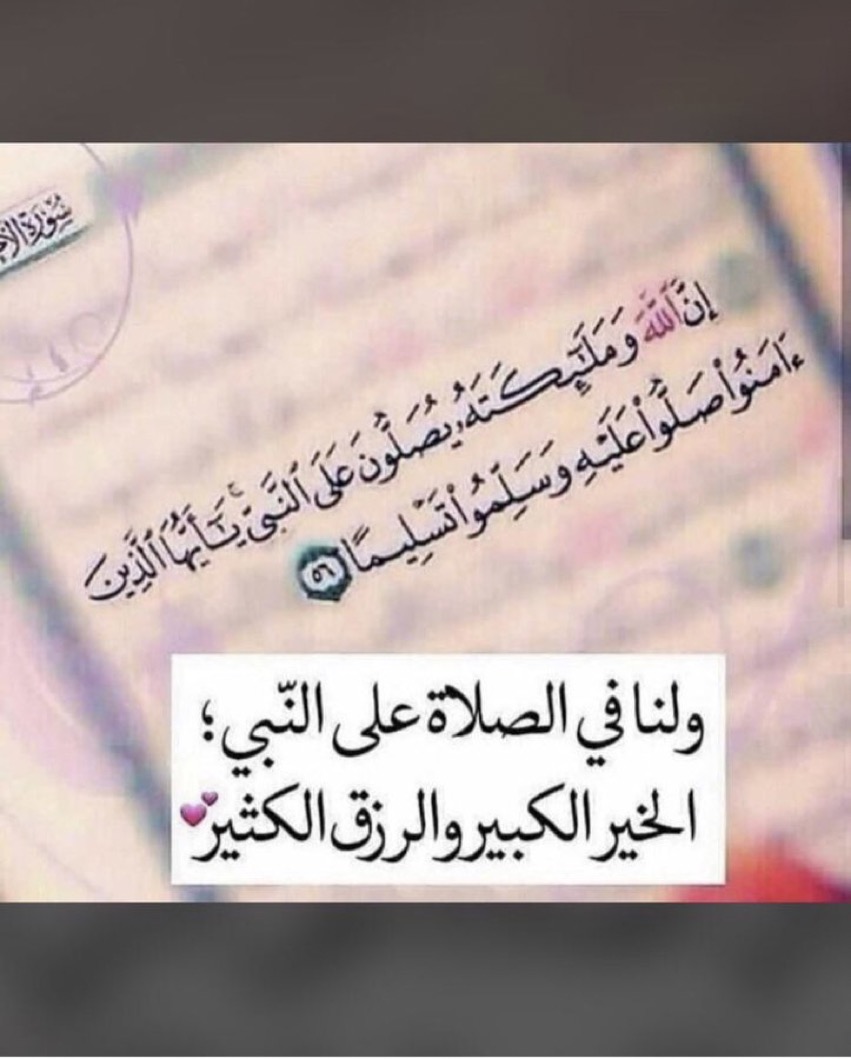 سُورَةُ
إِنَّ ٱللَّهَ وَمَلَٰٓئِكَتَهُۥ يُصَلُّونَ عَلَى ٱلنَّبِىِّ ۚ يَٰٓأَيُّهَا ٱلَّذِينَ
ءَامَنُوا۟ صَلُّوا۟ عَلَيْهِ وَسَلِّمُوا۟ تَسْلِيمًا ٥٦
ولنا في الصلاة على النّبي ؛
الخير الكبير والرزق الكثير💕